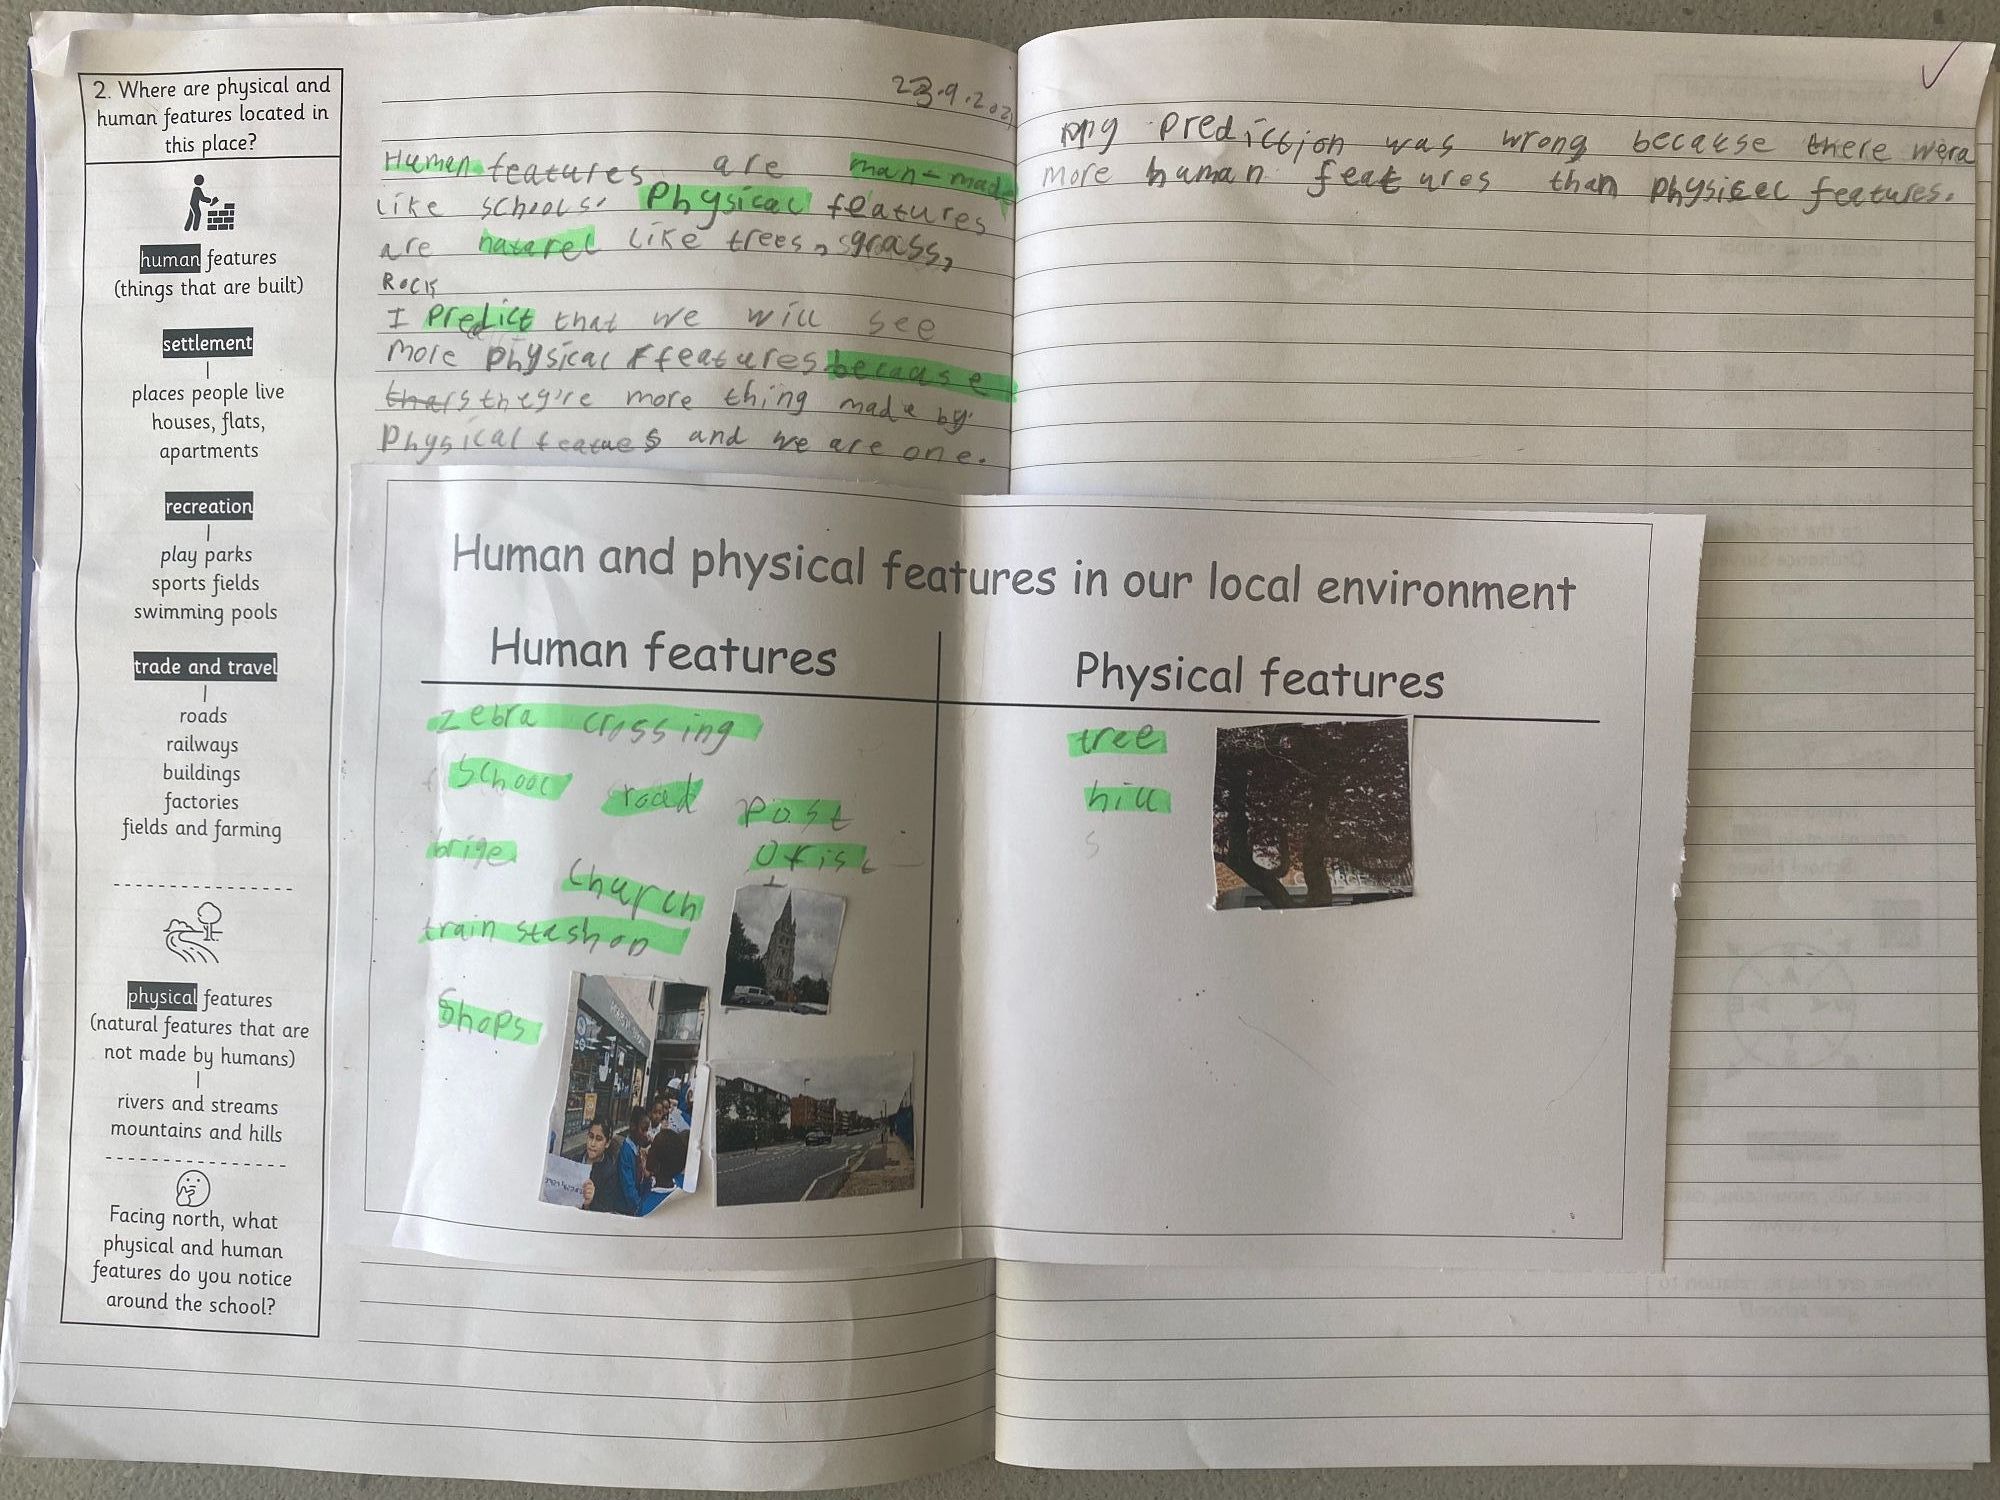 2. Where are physical and
human features located in
this place?
human features
(things that are built)
settlement
places people live
houses, flats,
apartments
recreation
play parks
sports fields
swimming pools
trade and travel
roads
railways
buildings
factories
fields and farming
physical features
(natural features that are
not made by humans)
rivers and streams
mountains and hills
Facing north, what
physical and human
features do you notice
around the school?
Human features are man-made
like schools. Physical features
are naturel like trees, grass,
Rock
I predict that we will see
more physical features because
they're more thing made by
Physical featues and we are one.
Human and physical features in our local environment
Human features
zebra crossing
school road post
brige ofisc
church
train stashon
Shops
Physical features
tree
hill
s
my prediction was wrong because there were
more human features than physicel features.